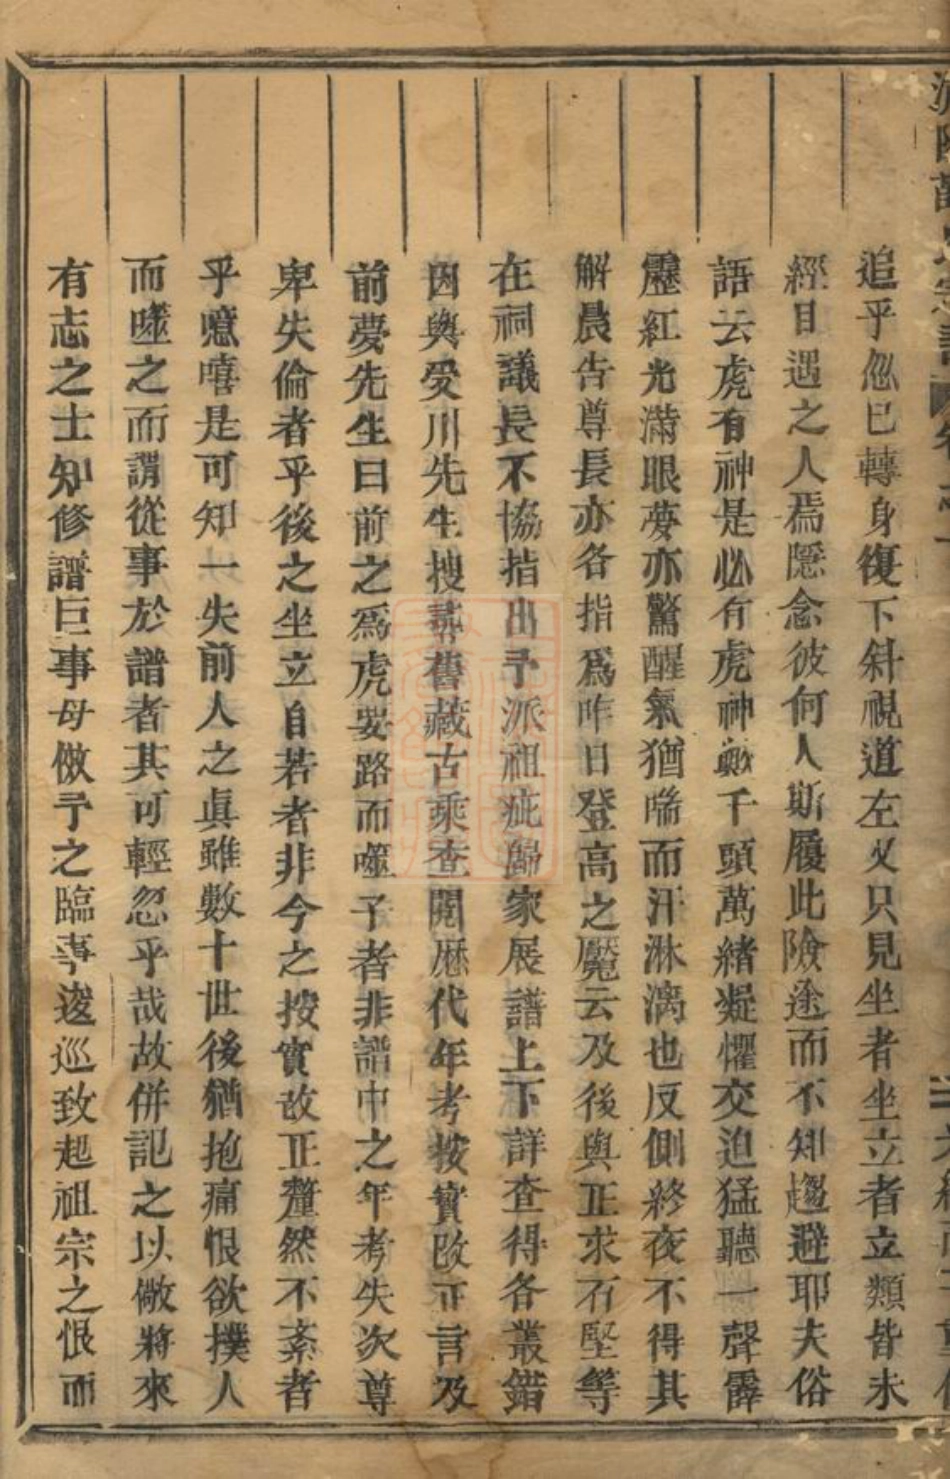 追乎忽已轉身復下斜視道左又只見坐者坐立者立類皆未
經目遇之人焉隱念彼何人斯履此險途而不知趨避耶夫俗
語云虎有神是必有虎神歟千頭萬緒疑懼交迫猛聽一聲霹
靂紅光滿眼夢亦驚醒氣猶喘而汗淋漓也反側終夜不得其
解晨告尊長亦各指為昨日登高之魘云及後與正求石堅等
在祠議長不協指出予派祖疵歸家展譜上下詳查得各叢錯
因與受川先生搜舊藏古乘查閱歷代年考按實改正言及
前夢先生曰前之為虎要路而噬子者非譜中之年考失次尊
卑失倫者乎後之坐立自若者非今之按實故正釐然不紊者
乎噫嘻是可知一失前人之眞雖數十世後猶抱痛恨欲撲人
而噬之而謂從事於譜者其可輕忽乎哉故併記之以儆將來
有志之士知修譜巨事毋倣予之臨事逡巡致起祖宗之恨而